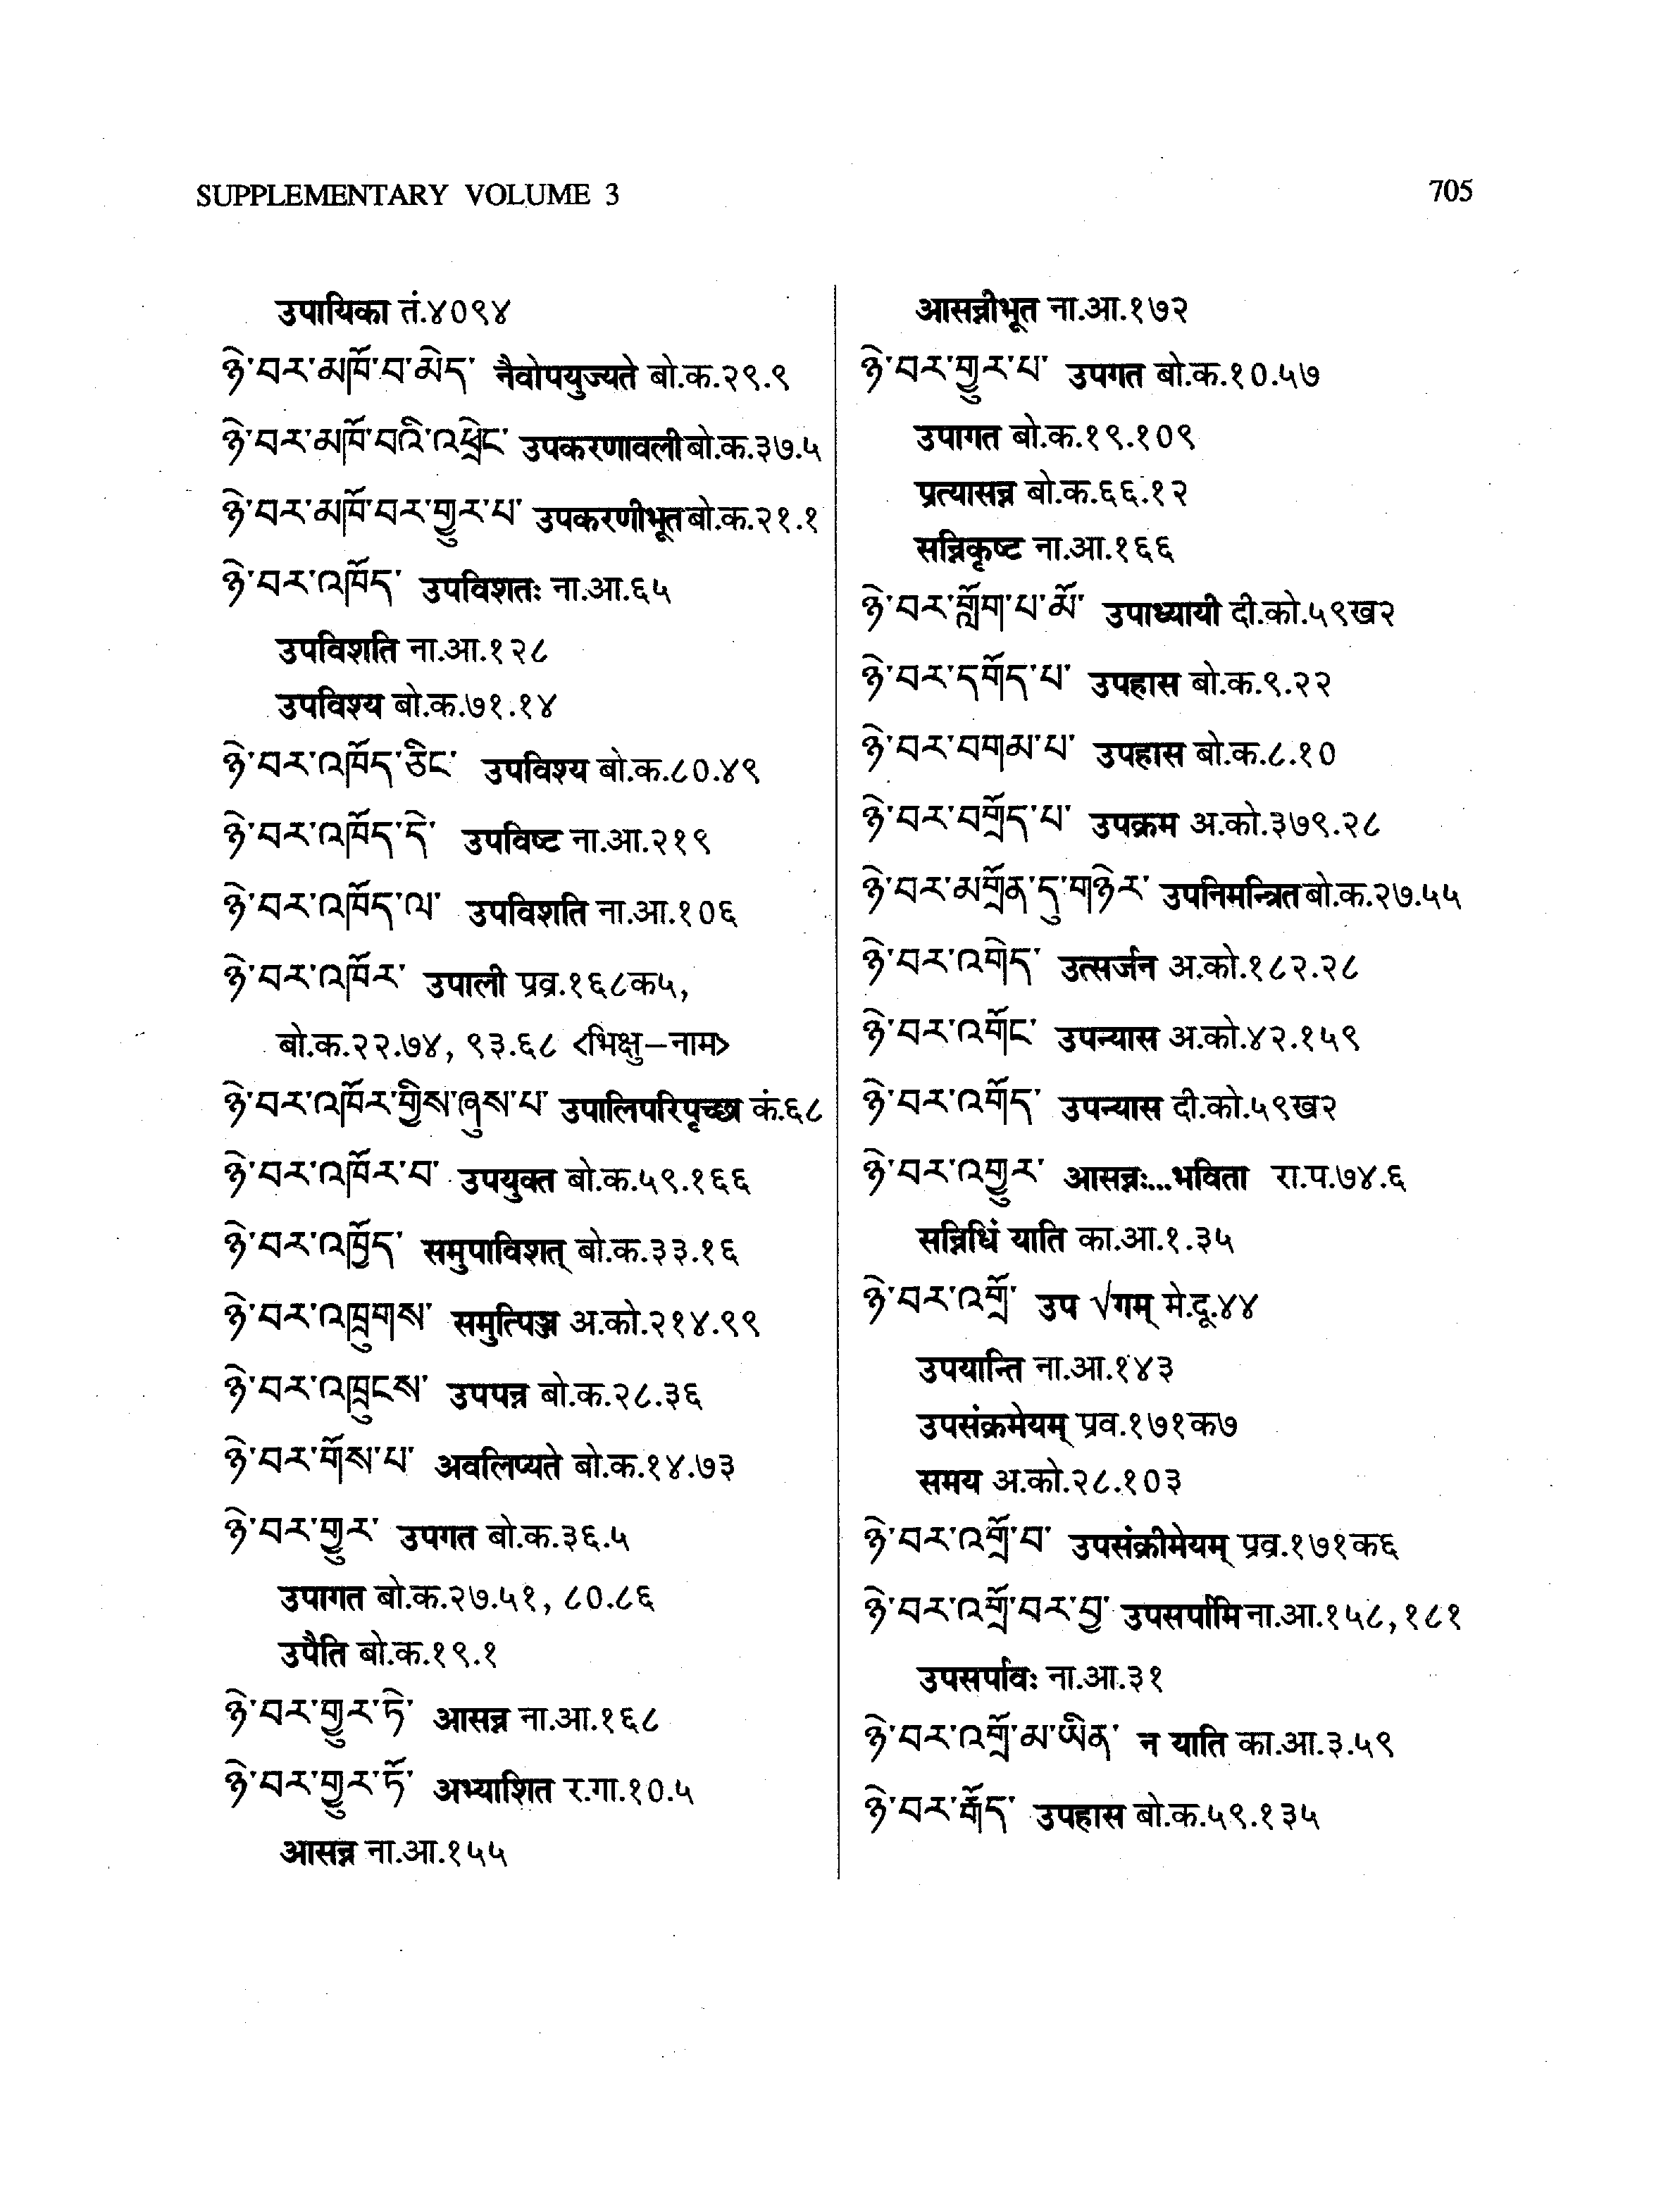 SUPPLEMENTARY VOLUME 3
705
उपायिका तं.४०९४
ཉེ་བར་མཁོ་བ་མེད་ नैवोपयुज्यते बो.क.२९.९
ཉེ་བར་མཁོ་བའི་འཕྲེང་ उपकरणावली बो.क.३७.५
ཉེ་བར་མཁོ་བར་གྱུར་པ་ उपकरणीभूत बो.क.२१.१
ཉེ་བར་འཁོད་ उपविशतः ना.आ.६५
उपविशति ना.आ.१२८
उपविश्य बो.क.७१.१४
ཉེ་བར་འཁོད་ཅིང་ उपविश्य बो.क.८०.४९
ཉེ་བར་འཁོད་དེ་ उपविष्ट ना.आ.२१९
ཉེ་བར་འཁོད་ལ་ उपविशति ना.आ.१०६
ཉེ་བར་འཁོར་ उपाली प्रव्र.१६८क५,
बो.क.२२.७४, ९३.६८ <भिक्षु–नाम>
ཉེ་བར་འཁོར་གྱིས་ཞུས་པ་ उपालिपरिपृच्छा कं.६८
ཉེ་བར་འཁོར་བ་ उपयुक्त बो.क.५९.१६६
ཉེ་བར་འཁྱོད་ समुपाविशत् बो.क.३३.१६
ཉེ་བར་འཁྲུགས་ समुत्पिञ्ज अ.को.२१४.९९
ཉེ་བར་འཁྲུངས་ उपपन्न बो.क.२८.३६
ཉེ་བར་གོས་པ་ अवलिप्यते बो.क.१४.७३
ཉེ་བར་གྱུར་ उपगत बो.क.३६.५
उपागत बो.क.२७.५१, ८०.८६
उपैति बो.क.१९.१
ཉེ་བར་གྱུར་ཏེ་ आसन्न ना.आ.१६८
ཉེ་བར་གྱུར་ཏོ་ अभ्याशित र.गा.१०.५
आसन्न ना.आ.१५५
आसन्नीभूत ना.आ.१७२
ཉེ་བར་གྱུར་པ་ उपगत बो.क.१०.५७
उपागत बो.क.१९.१०९
प्रत्यासन्न बो.क.६६.१२
सन्निकृष्ट ना.आ.१६६
ཉེ་བར་ཀློག་པ་མོ་ उपाध्यायी दी.को.५९ख२
ཉེ་བར་དགོད་པ་ उपहास बो.क.९.२२
ཉེ་བར་བགམ་པ་ उपहास बो.क.८.१०
ཉེ་བར་བགྲོད་པ་ उपक्रम अ.को.३७९.२८
ཉེ་བར་མགྲོན་དུ་གཉེར་ उपनिमन्त्रित बो.क.२७.५५
ཉེ་བར་འགེད་ उत्सर्जन अ.को.१८२.२८
ཉེ་བར་འགོང་ उपन्यास अ.को.४२.१५९
ཉེ་བར་འགོད་ उपन्यास दी.को.५९ख२
ཉེ་བར་འགྱུར་ आसन्नः...भविता रा.प.७४.६
सन्निधिं याति का.आ.१.३५
ཉེ་བར་འགྲོ་ उप √गम् मे.दू.४४
उपयान्ति ना.आ.१४३
उपसंक्रमेयम् प्रव.१७१क७
समय अ.को.२८.१०३
ཉེ་བར་འགྲོ་བ་ उपसंक्रीमेयम् प्रव्र.१७१क६
ཉེ་བར་འགྲོ་བར་བྱ་ उपसर्पामि ना.आ.१५८,१८१
उपसर्पावः ना.आ.३१
ཉེ་བར་འགྲོ་མ་ཡིན་ न याति का.आ.३.५९
ཉེ་བར་རྒོད་ उपहास बो.क.५९.१३५